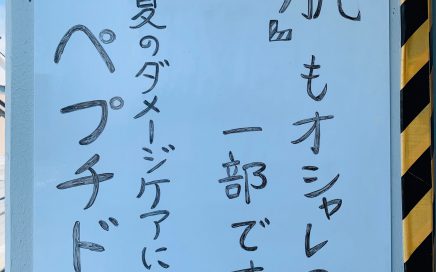 肌』もオシャレの
一部です
夏のダメージケアに
ペプチド